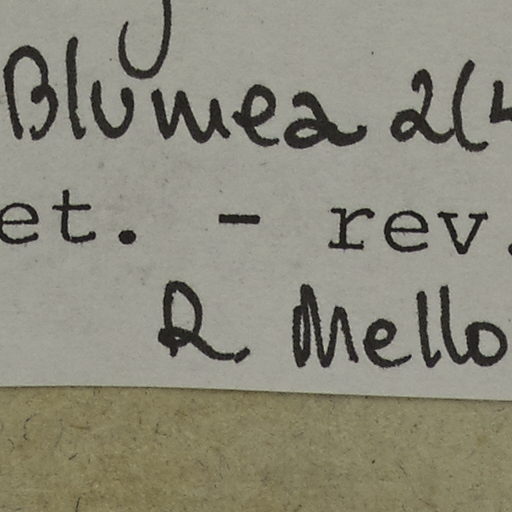 Blumea 2(4
et. - rev.
R. Mello